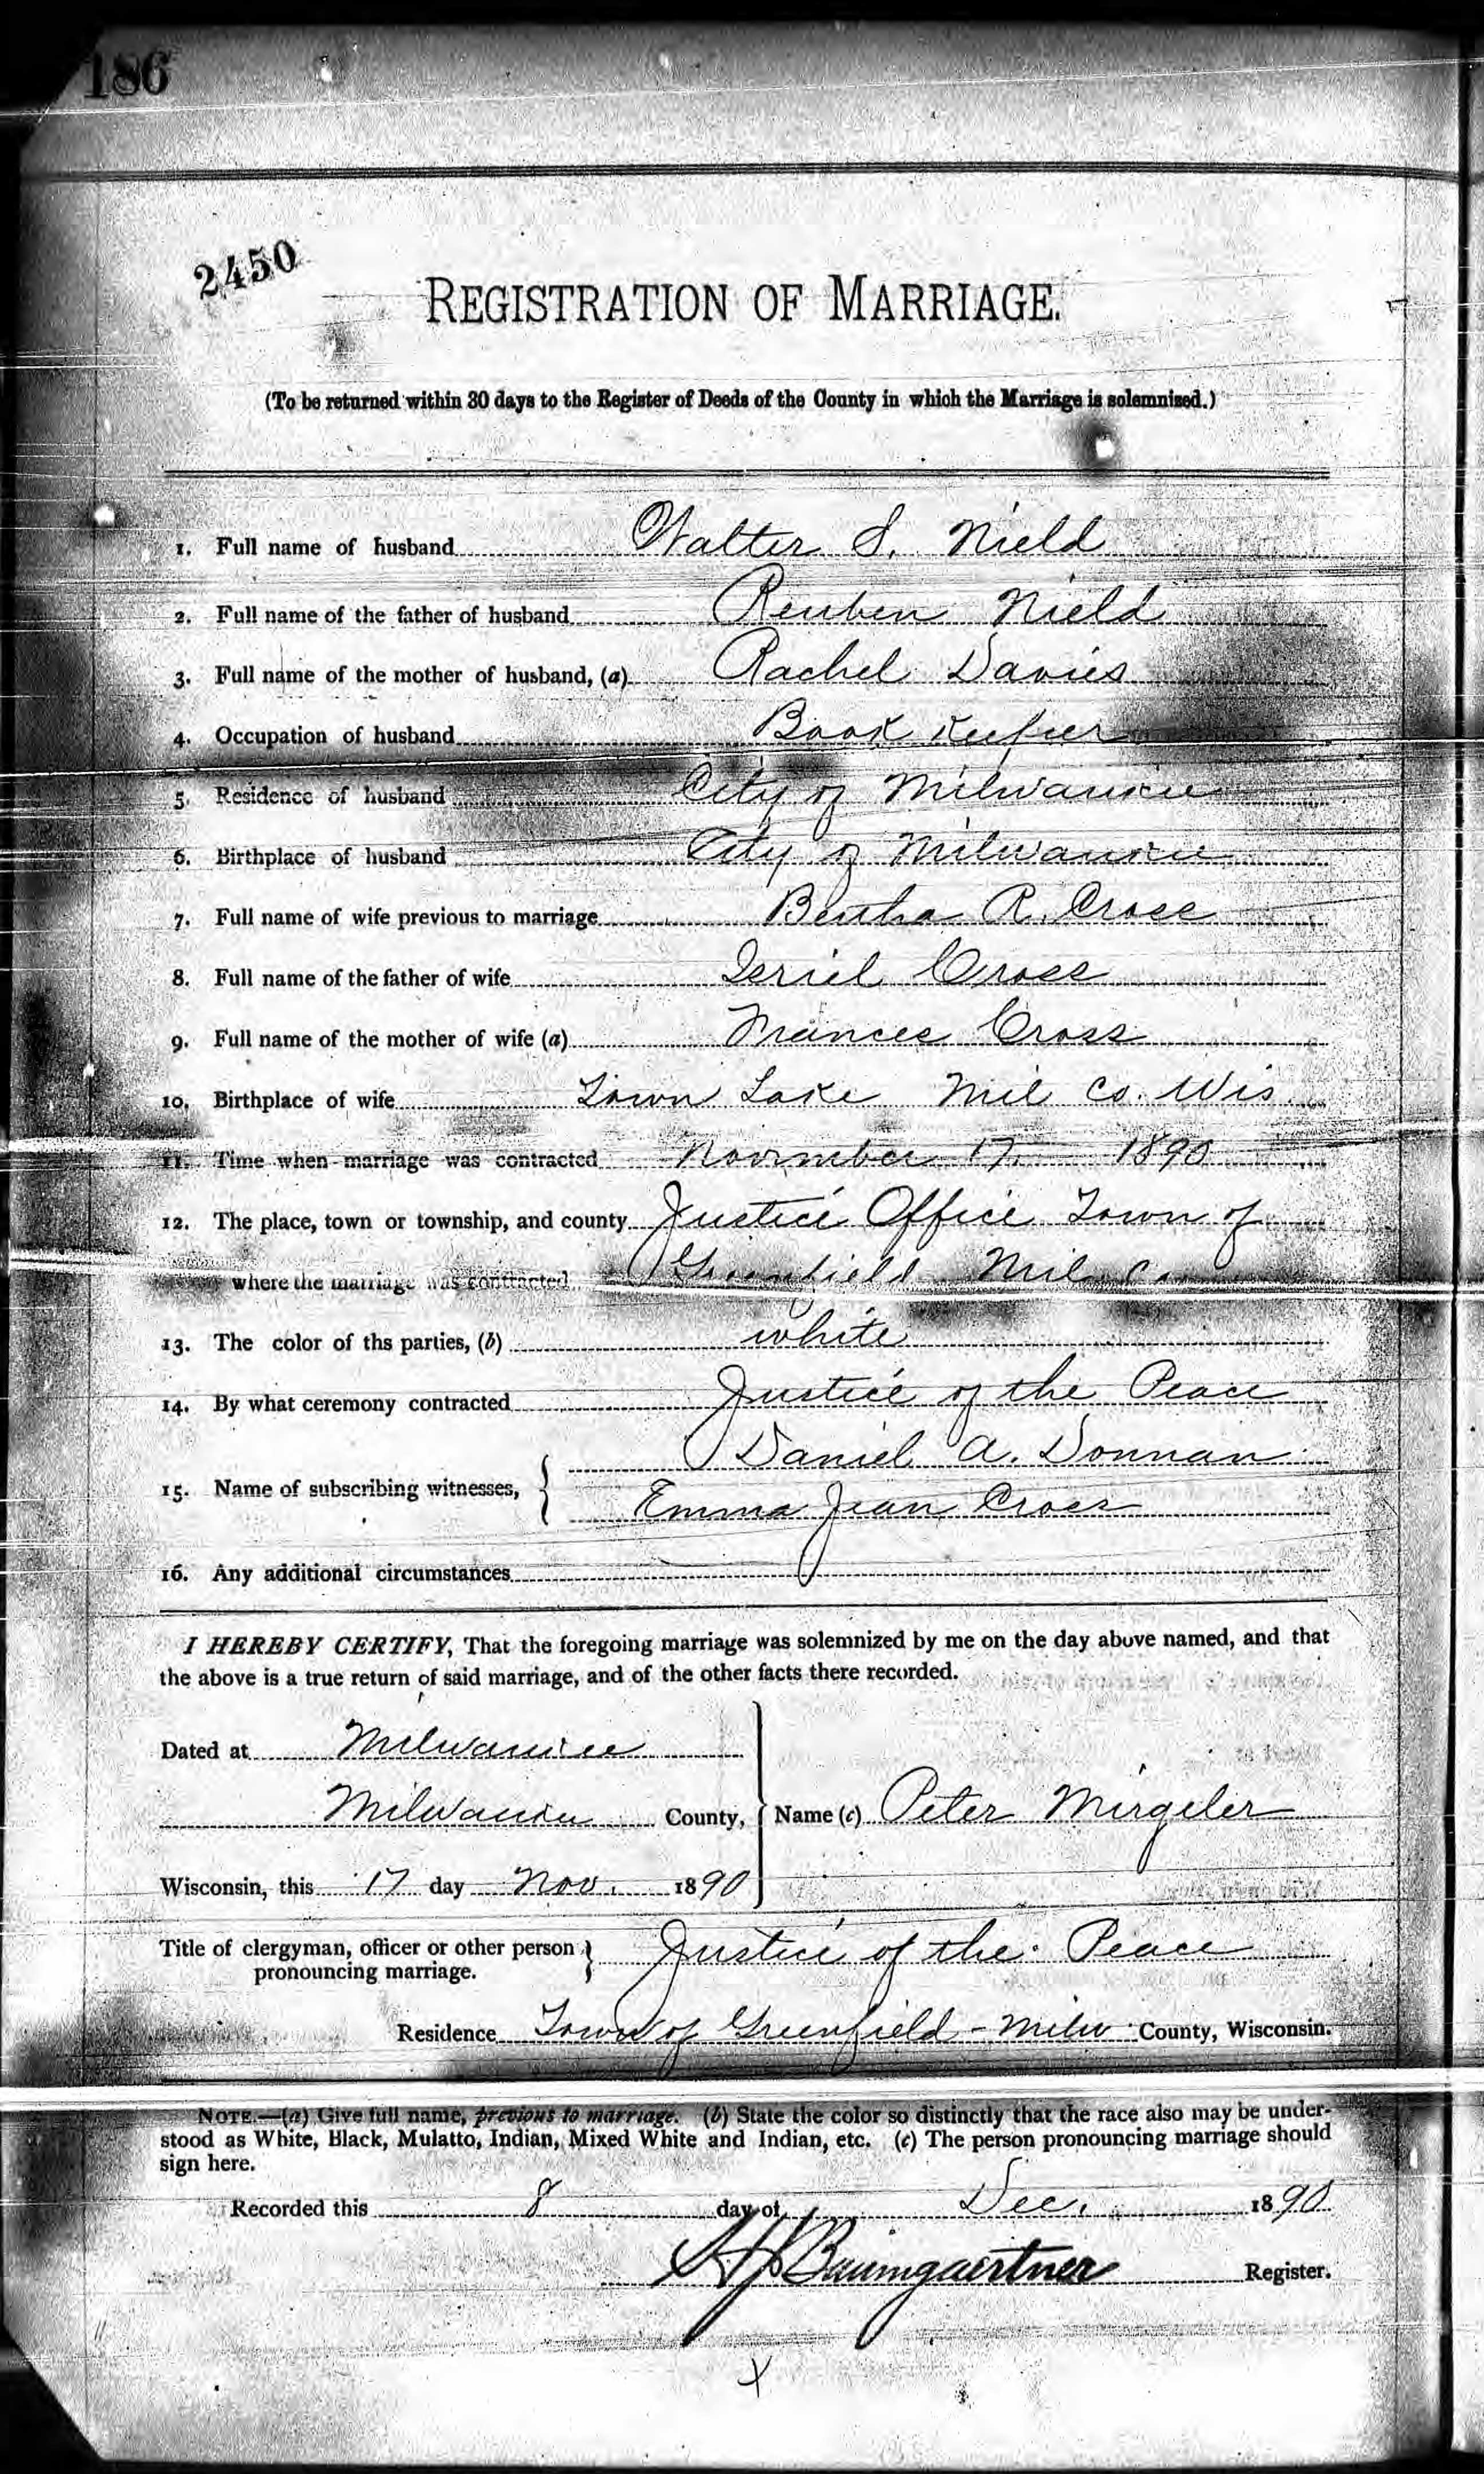 186
2450
REGISTRATION OF MARRIAGE.
(To be returned within 30 days to the Register of Deeds of the County in which the Marriage is solemnized.)
1. Full name of husband Walter S. Nield
2. Full name of the father of husband Reuben Nield
3. Full name of the mother of husband, (a) Rachel Davies
4. Occupation of husband Book Keeper
5. Residence of husband City of Milwaukee
6. Birthplace of husband City of Milwaukee
7. Full name of wife previous to marriage Bertha R. Cross
8. Full name of the father of wife Cross
9. Full name of the mother of wife (a) Frances Cross
10. Birthplace of wife Town Lake Mil Co. Wis
11. Time when marriage was contracted November 17. 1890
12. The place, town or township, and county Justice Office Town of
where the marriage was contracted Greenfield Mil Co
13. The color of ths parties, (b) white
14. By what ceremony contracted Justice of the Peace
Daniel A. Donnan
15. Name of subscribing witnesses, {
Emma Jean Cross
16. Any additional circumstances
I HEREBY CERTIFY, That the foregoing marriage was solemnized by me on the day above named, and that
the above is a true return of said marriage, and of the other facts there recorded.
Dated at Milwaukee
Milwaukee County, } Name (c) Peter Mirgeler
Wisconsin, this 17 day Nov. 1890
Title of clergyman, officer or other person } Justice of the Peace
pronouncing marriage.
Residence Town of Greenfield - Milw County, Wisconsin.
NOTE.—(a) Give full name, previous to marriage. (b) State the color so distinctly that the race also may be under-
stood as White, Black, Mulatto, Indian, Mixed White and Indian, etc. (c) The person pronouncing marriage should
sign here.
Recorded this 8 day of Dec. 1890
Baumgaertner Register.
X